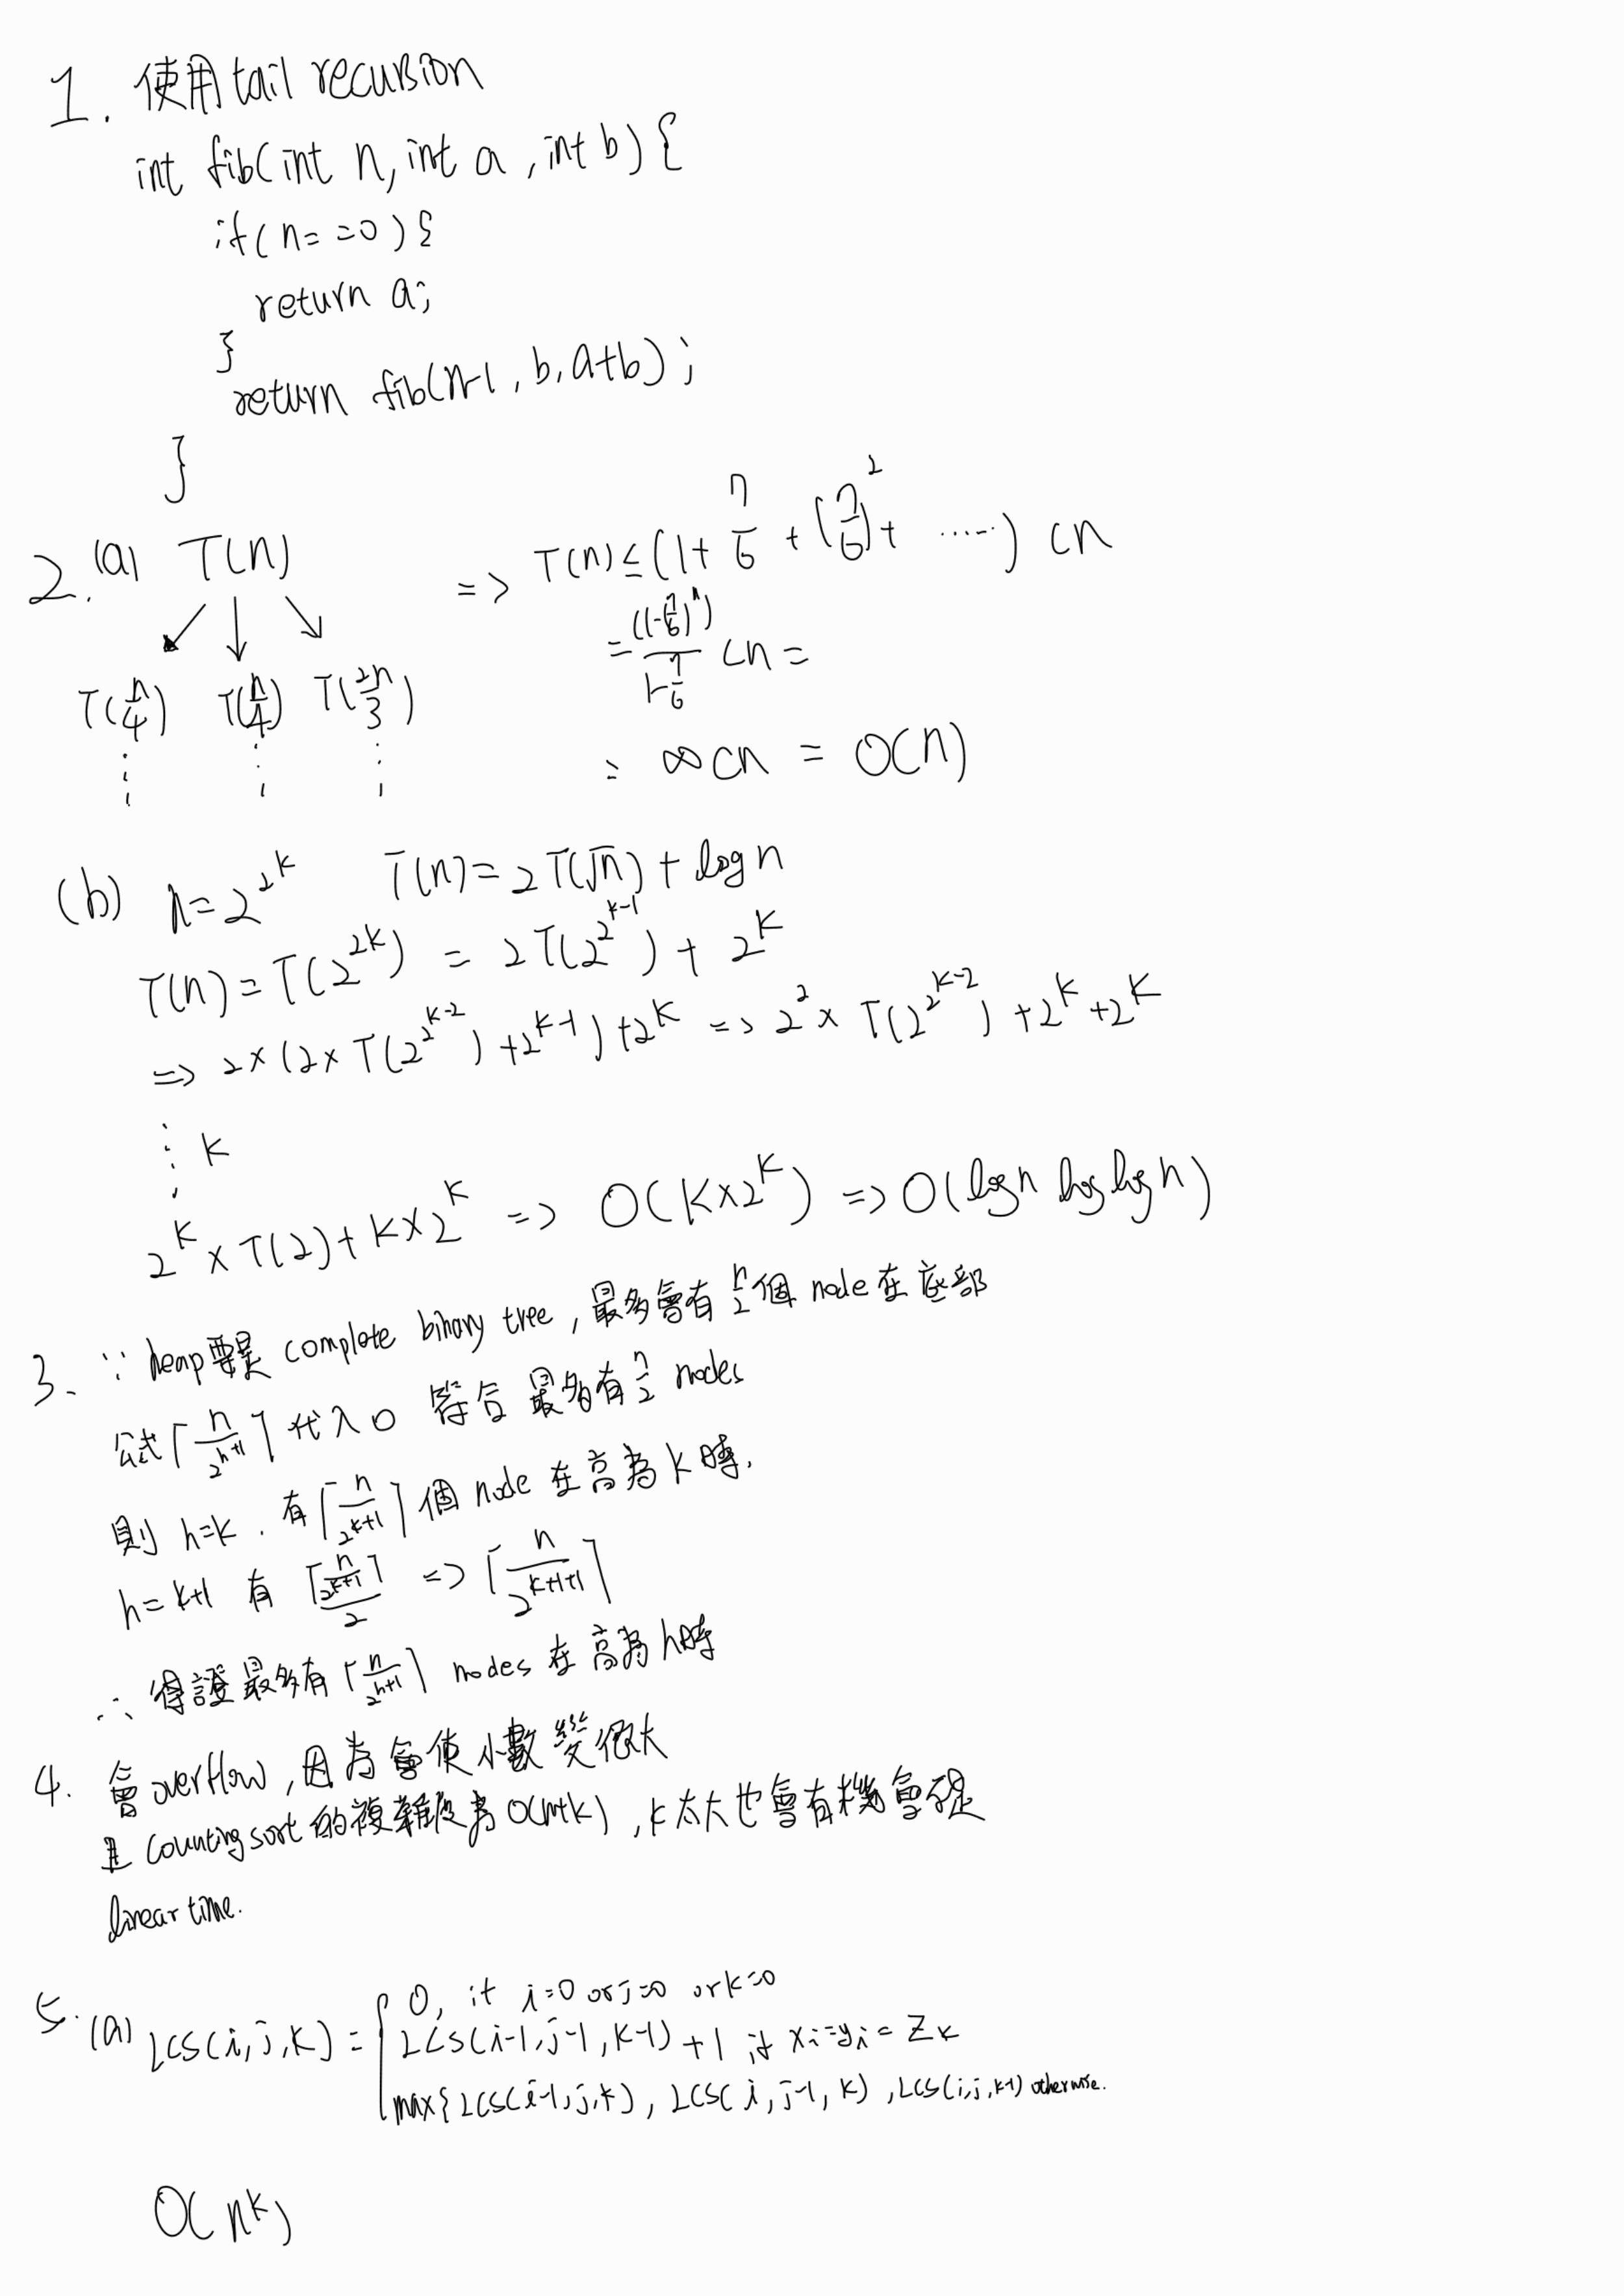 1. 使用tail recursion
int fib(int n, int a, int b) {
if(n==0){
return a;
}
return fib(n-1, b, a+b);
}
2. (a) T(n) => T(n) ≤ (1 + 7/6 + (7/6)^2 + ......) cn
T(n/4) T(n/4) T(2n/3)
= (1-(7/6)^n)/(1-7/6) cn =
= ∞ cn = O(n)
(b) n=2^2^k T(n)=2T(√n) + log n
T(n)=T(2^2k) = 2T(2^2^k-1) + 2^k
=> 2×(2×T(2^2^k-2)+2^k-1)+2^k => 2^2×T(2^2^k-2)+2^k+2^k
⋮ k
2^k×T(2)+k×2^k => O(k×2^k) => O(log n log log n)
3. ∵ heap要是 complete binary tree, 最多會有n/2個 node在底部
公式⌈n/2^h+1⌉代入0 符合 最多有n/2 nodes
則 h=k. 有⌈n/2^k+1⌉個 node 在高為k時.
h=k+1 有 ⌈n/2^k+1⌉/2 => ⌈n/2^k+1+1⌉
∴ 得證最多有⌈n/2^h+1⌉ nodes 在高為h時
4. 會overflow, 因為會使小數變很大
且 counting sort 的複雜度為O(n+k), k太大也會有機會不是
linear time.
5. (a) LCS(i,j,k) = { 0, if i=0 or j=0 or k=0
LCS(i-1,j-1,k-1) +1 if xi=yi=zk
max{LCS(i-1,j,k), LCS(i,j-1,k), LCS(i,j,k-1) otherwise.
O(n^k)